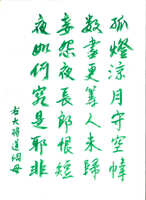 孤燈涼月守空幃
數盡更籌人未歸
妾怨夜長郎恨短
夜如何究是耶非
右大將道綱母